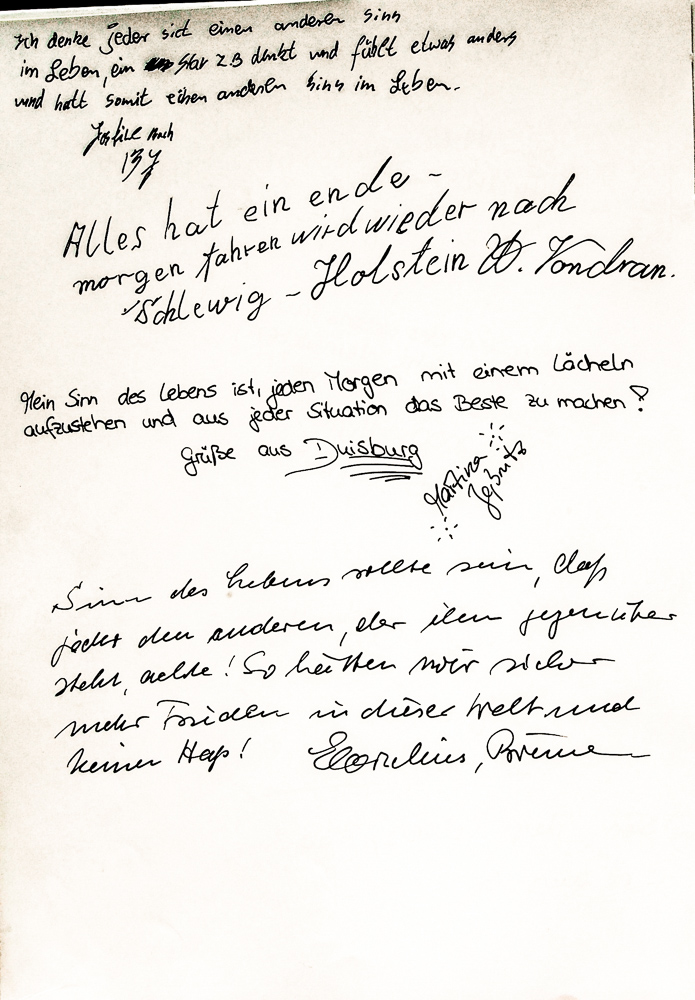 Ich denke jeder sict einen anderen Sinn
im Leben, ein Star z B denkt und fühlt etwas anders
und hatt somit einen anderen Sinn im Leben.
13 J
Alles hat ein ende -
morgen fahren wird wieder nach
Schlewig - Holstein W. Vondran.
Mein Sinn des Lebens ist, jeden Morgen mit einem Lächeln
aufzustehen und aus jeder Situation das Beste zu machen!
Grüße aus Duisburg
Martina
Sinn des Lebens sollte sein, daß
jeder den anderen, der ihm gegenüber
steht, achte! So hätten wir sicher
mehr Frieden in dieser Welt und
keinen Haß! Cornelius, Bremen